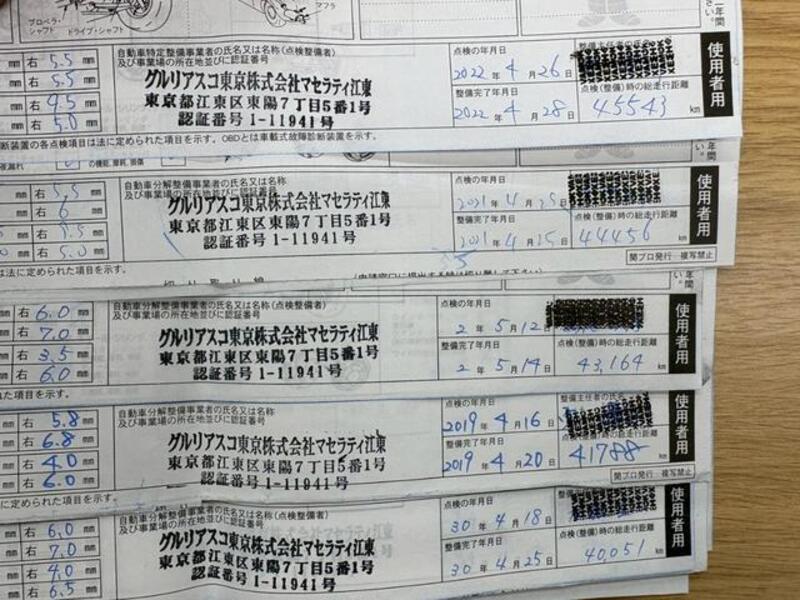 プロペラ・シャフト
ドライブ・シャフト
マフラ
右 5.5 mm
右 5.5 mm
右 9.5 mm
右 5.0 mm
自動車特定整備事業者の氏名又は名称(点検整備者)
及び事業場の所在地並びに認証番号
グルリアスコ東京株式会社マセラティ江東
東京都江東区東陽7丁目5番1号
認証番号 1-11941号
点検の年月日
2022年 4月 26日
整備完了年月日
2022年 4月 28日
整備主任者の氏名
点検(整備)時の総走行距離
45543 km
使用者用
年間
い。
断装置の各点検項目は法に定められた項目を示す。OBDとは車載式故障診断装置を示す。
の機能、摩耗、損傷
右 5.5 mm
右 6 mm
右 5.5 mm
右 5.0 mm
自動車分解整備事業者の氏名又は名称
及び事業場の所在地並びに認証番号
グルリアスコ東京株式会社マセラティ江東
東京都江東区東陽7丁目5番1号
認証番号 1-11941号
点検の年月日
2021年 4月 25日
整備完了年月日
2021年 4月 25日
点検(整備)時の総走行距離
44456 km
使用者用
関プロ発行 複写禁止
は法に定められた項目を示す。
切り取り線
右 6.0 mm
右 7.0 mm
右 3.5 mm
右 6.0 mm
自動車分解整備事業者の氏名又は名称(点検整備者)
及び事業場の所在地並びに認証番号
グルリアスコ東京株式会社マセラティ江東
東京都江東区東陽7丁目5番1号
認証番号 1-11941号
点検の年月日
2年 5月 12日
整備完了年月日
2年 5月 14日
点検(整備)時の総走行距離
43,164 km
使用者用
れた項目を示す。
右 5.8 mm
右 6.8 mm
右 4.0 mm
右 6.0 mm
自動車分解整備事業者の氏名又は名称
及び事業場の所在地並びに認証番号
グルリアスコ東京株式会社マセラティ江東
東京都江東区東陽7丁目5番1号
認証番号 1-11941号
点検の年月日
2019年 4月 16日
整備完了年月日
2019年 4月 20日
整備主任者の氏名
総走行距離
41788 km
使用者用
関プロ発行 複写禁止
に定められた項目を示す。
右 6.0 mm
右 7.0 mm
右 4.0 mm
右 6.5 mm
自動車分解整備事業者の氏名又は名称(点検整備者)
及び事業場の所在地並びに認証番号
グルリアスコ東京株式会社マセラティ江東
東京都江東区東陽7丁目5番1号
認証番号 1-11941号
点検の年月日
30年 4月 18日
整備完了年月日
30年 4月 25日
点検(整備)時の総走行距離
40,051 km
使用者用